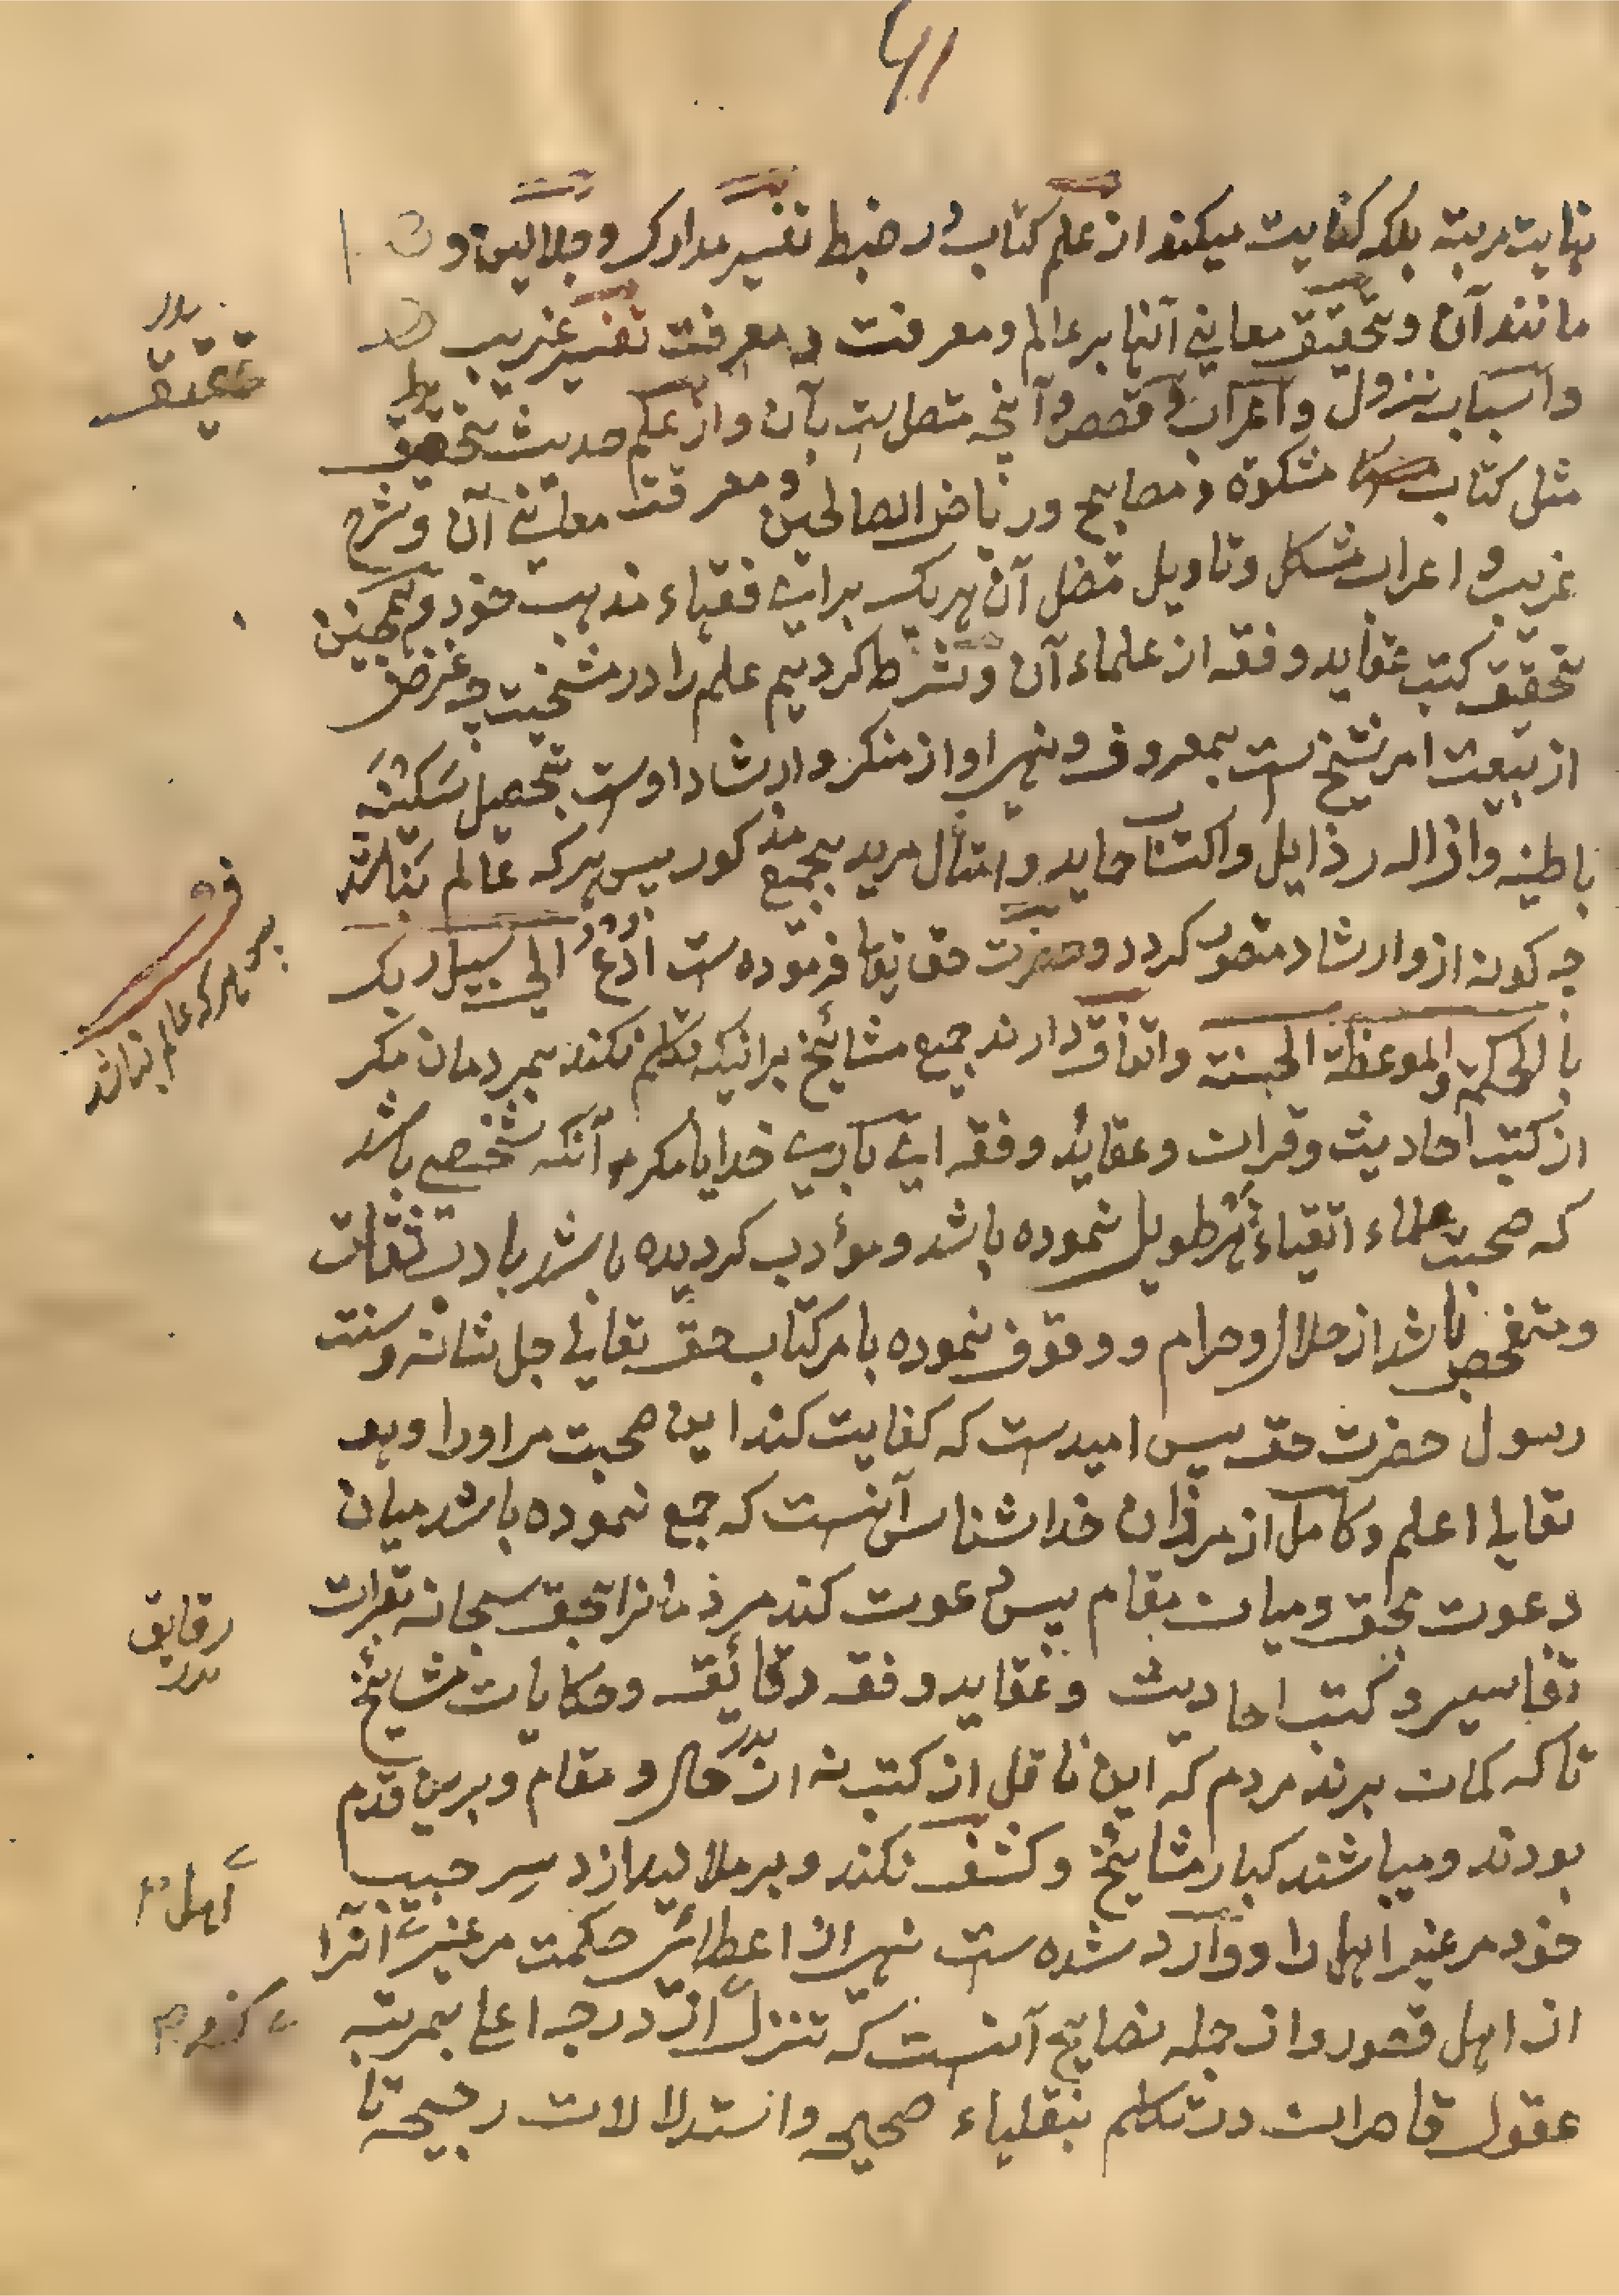 ۴۱
نهایت مرتبه بلکه کفایت میکند از علم کتاب در ضبط تفسیر مدارک و جلالین و
مانند آن و تحقیق معانی آنها بر عالم و معرفت و معرفت تفسیر غریب
و اسباب نزول و اعراب و قصص و آنچه متصل ست بآن و از علم حدیث تحقیق
مثل کتاب مشکوة و مصابیح و ریاض الصالحین و معرفت معانی آن و شرح
غریب و اعراب مشکل و تاویل معضل آن هریک برای فقهاء مذهب خود و همچنین
تحقیق کتب عقاید و فقه از علماء آن و شرط کردیم علم را در مشیخت چه غرض
از بیعت امر شیخ ست بمعروف و نهی او از منکر و ارشاد اوست بتحصیل سکینه
باطنیه و ازاله رذایل و اکتساب حاید و امتثال مرید بجمیع مذکور پس هرکه عالم نباشد
چه کونه ازو ارشاد متصور کردد و حضرت حق تعا فرموده ست ادع الی سبیل ربک
بالحکمة والموعظة الحسنة و اتفاق دارند جمیع مشایخ برانیکه تکلم نکند بمردمان مکر
از کتب احادیث و قران و عقاید و فقه ای باری خدایا مکر آنکه شخصی باشد
که صحبت علماء اتقیاء دهر طویل نموده باشد و مؤدب کردیده باشد بادب ثقات
و متفحص باشد از حلال و حرام و وقوف نموده بامر کتاب حق تعالی جل شانه و سنت
رسول حضرت حق پس امیدست که کفایت کند این صحبت مر اورا و هو
تعالی اعلم و کامل از مردان خدا شناس آنست که جمع نموده باشد میان
دعوت بحق و میان مقام پس دعوت کند مردمانرا بحق سبحانه بقرات
تفاسیر و کتب احادیث و عقاید و فقه و قایق و حکایات مشایخ
تا که کمان برند مردم که این ناقل از کتب نه از حال و مقام و برین قدم
بودند و میباشند کبار مشایخ و کشف نکند و برملا نیدازد سر حبیب
خود مر غیر اهل را و وارد شده ست نهی از اعطای حکمت مر غیر آنرا
از اهل قصور و از جمله نصایح آنست که تنزل از درجه اعلی بمرتبه
عقول قاهرات در تکلم بنقلیاء صحیحه و استدلالات رجیحه تا
بدل
تحقیق
پس هرکه عالم نباشد
رقایق
بدل
اهل